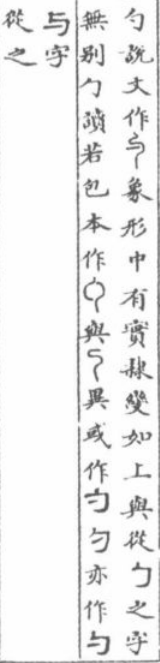 勺說文作𠣌象形中有實隸變如上與從勹之字
無别勹讀若包本作𠣜與𠃌異或作勺匀亦作勻
与字
從之